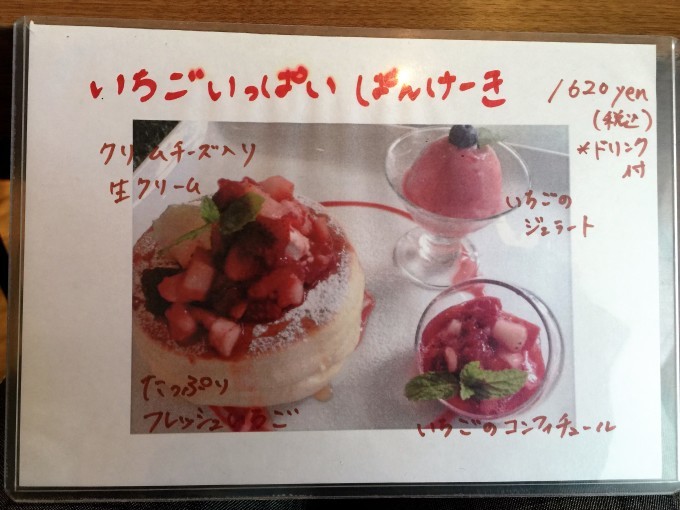 いちごいっぱい ぱんけーき
1620yen
(税込)
*ドリンク
付
クリームチーズ入り
生クリーム
いちごの
ジェラート
たっぷり
フレッシュいちご
いちごのコンフィチュール